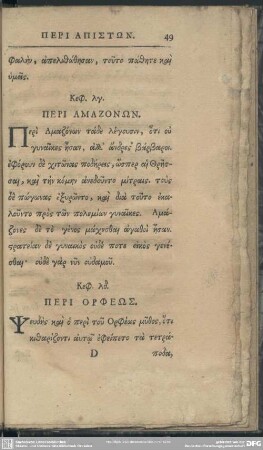 ΠΕΡΙ ΑΠΙΣΤΩΝ. 49
Φαλὴν, ἀπελιθώθησαν, τοῦτο πάθητε καὶ
ὑμεῖς.
Κεφ. λγ.
ΠΕΡΙ ΑΜΑΖΟΝΩΝ.
Περὶ Αμαζόνων τάδε λέγουσιν, ὅτι οὐ
γυναῖκες ἦσαν, ἀλλ' ἄνδρες βάρβαροι.
ἐφόρουν δὲ χιτῶνας ποδήρεις, ὥσπερ αἱ Θρῇσ-
σαι, καὶ τὴν κόμην ἀνεδοῦντο μίτραις. τοὺς
δὲ πώγωνας ἐξυρῶντο, καὶ διὰ τοῦτο ἐκα-
λοῦντο πρὸς τῶν πολεμίων γυναῖκες. Αμα-
ζόνες δὲ τὸ γένος μάχεσθαι ἀγαθοὶ ἦσαν.
στρατείαν δὲ γυναικῶν οὐδέ ποτε εἰκὸς γενέσ-
θαι· οὐδὲ γὰρ νῦν οὐδαμοῦ.
Κεφ. λδ.
ΠΕΡΙ ΟΡΦΕΩΣ.
Ψευδὴς καὶ ὁ περὶ τοῦ Ορφέως μῦθος, ὅτι
κιθαρίζοντι αὐτῷ ἐφείπετο τὰ τετρά-
D ποδα,